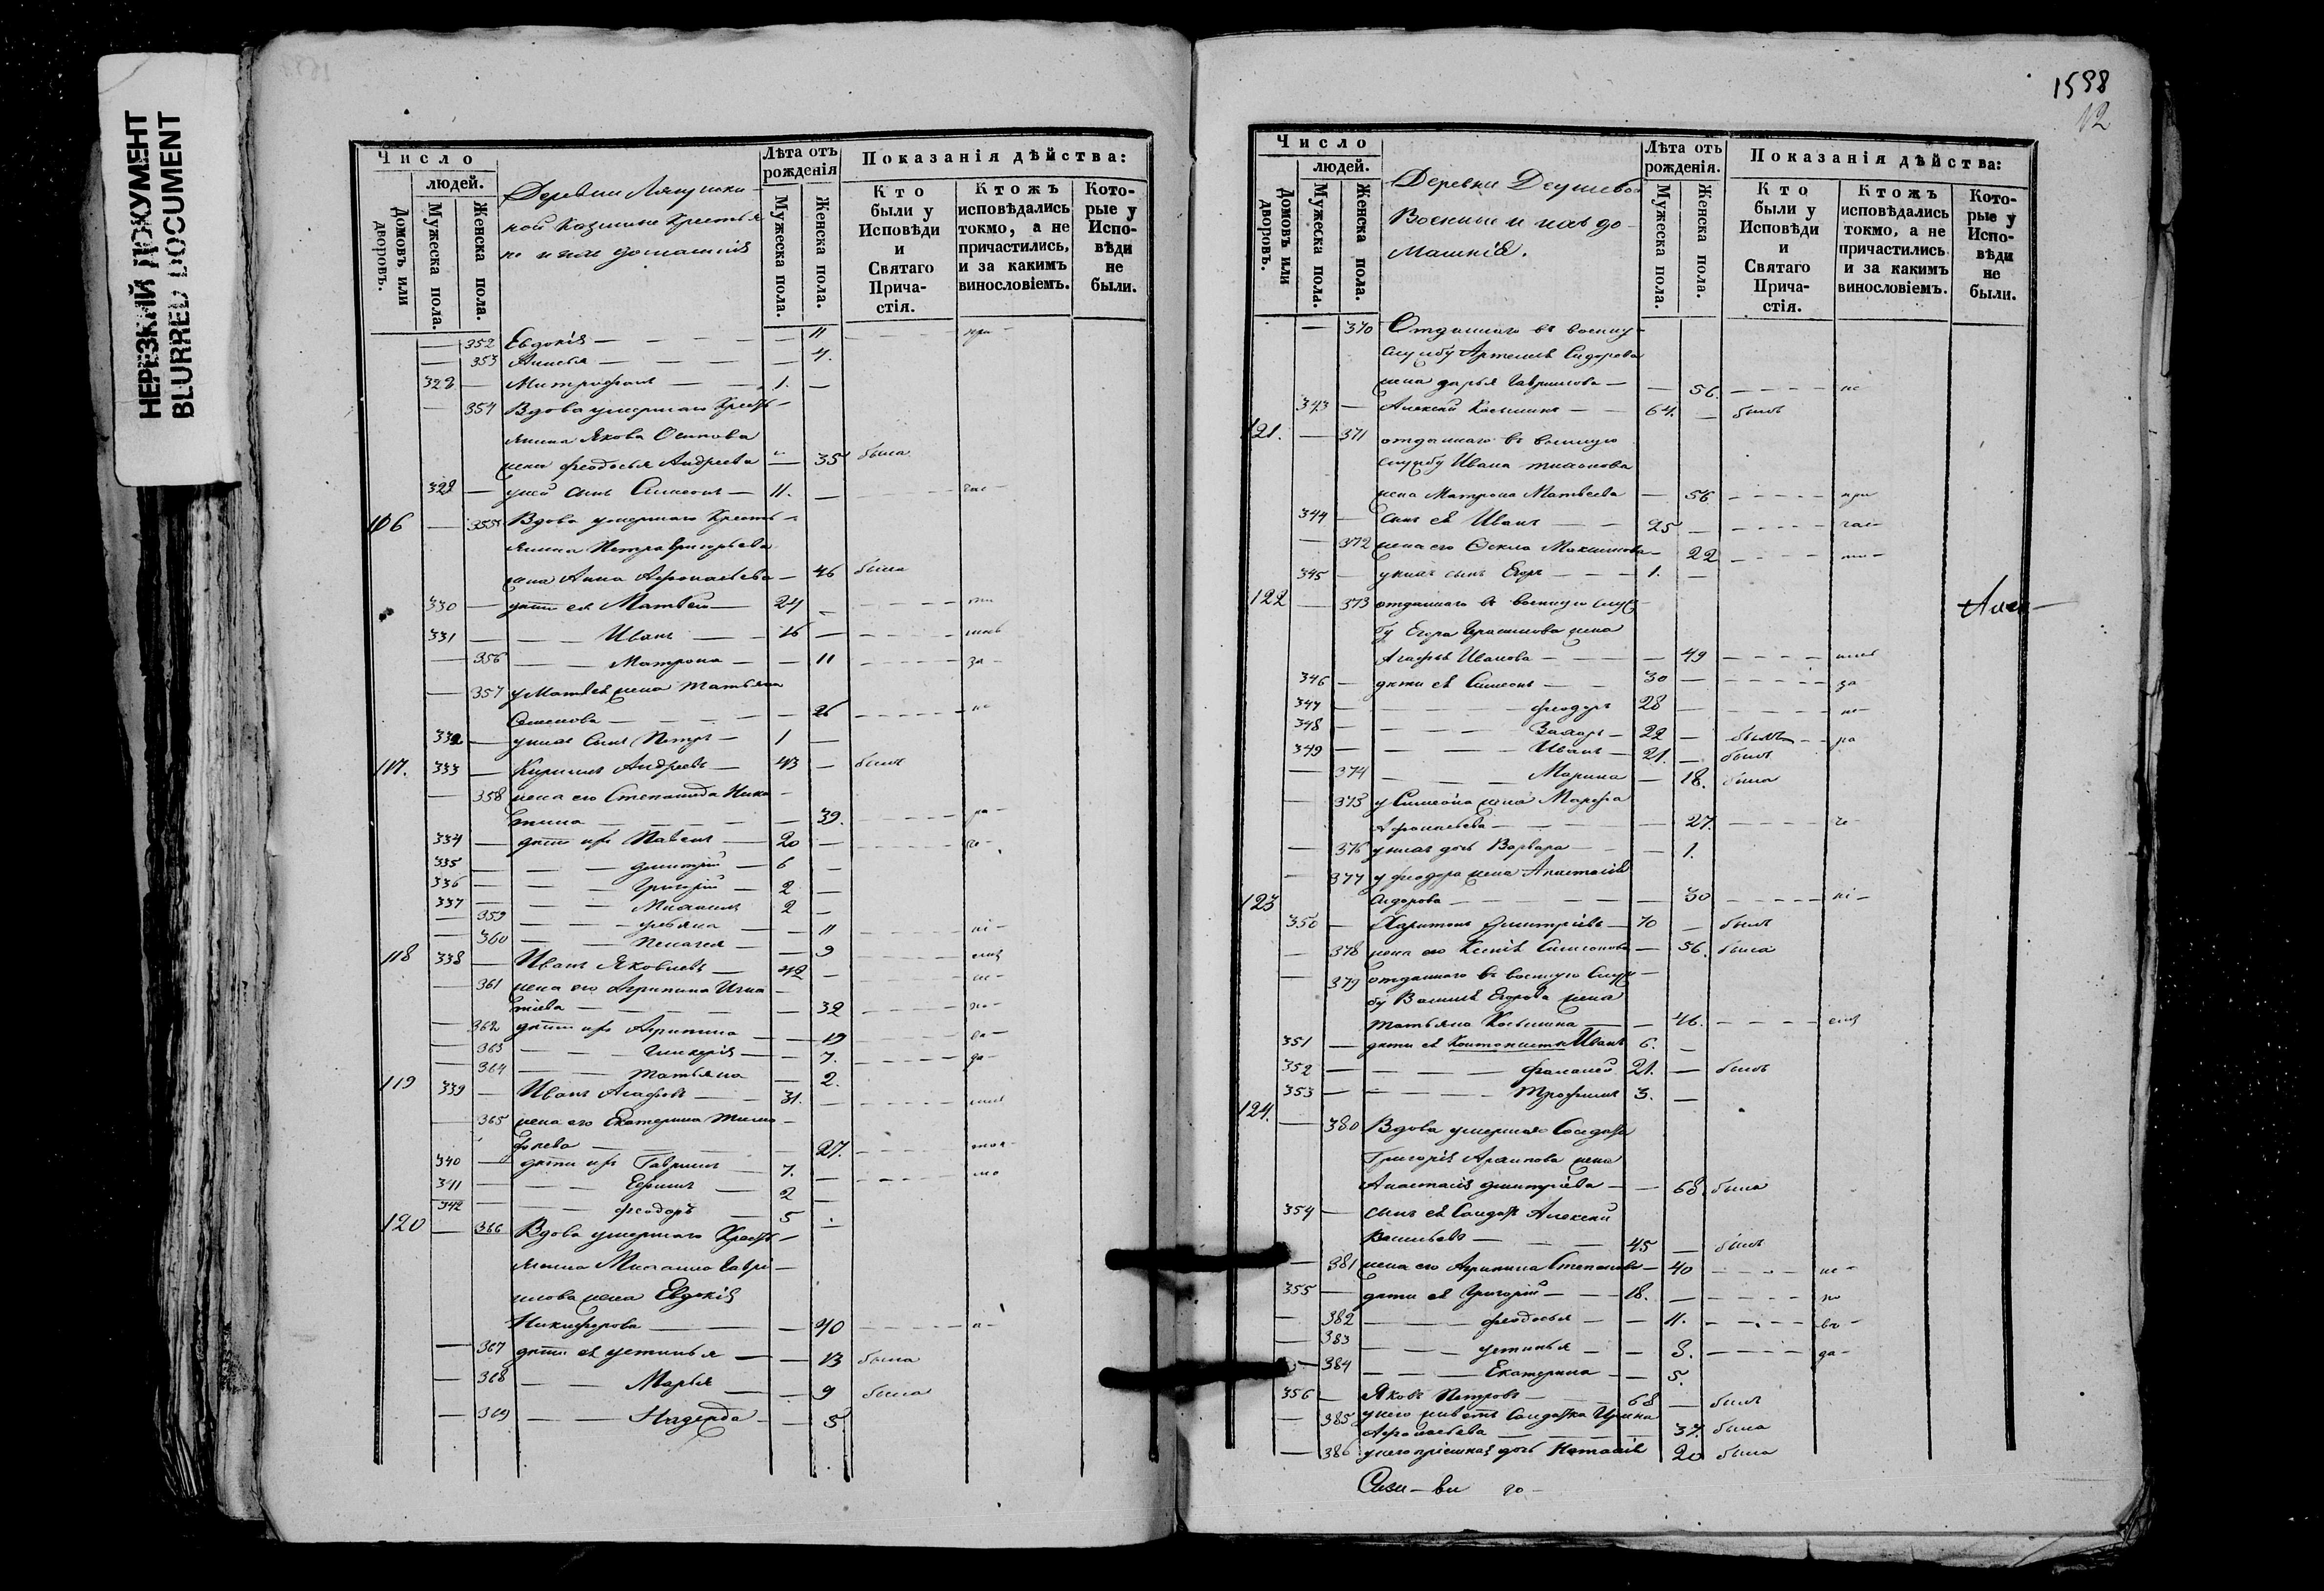 НЕРЕЗКИЙ ДОКУМЕНТ
BLURRED DOCUMENT
Число
людей.
Домовъ или дворовъ.
Мужеска пола.
Женска пола.
Деревни
Казенные Крестья
не и ихъ домашнія
Лѣта отъ рожденія
Мужеска пола.
Женска пола.
Показанія дѣйства:
Кто были у Исповѣди и Святаго Причастія.
Ктожъ исповѣдались токмо, а не причастились, и за какимъ винословіемъ.
Которые у Исповѣди не были.
352 Евдокія 11
353 4.
Митрофанъ 1.
354 Вдова умершаго Кресть
янина Якова Осипова
жена Феодосья Андреева 35 была
у ней сынъ Симеонъ 11.
355 Вдова умершаго Кресть
янина Петра Григорьева
жена Анна Афонасьева 46 была
330 дѣти ея Матвей 24
331 Иванъ 16
356 Матрона 11
357 у Матвея жена Татьяна
Семенова 26
332 у нихъ сынъ Петръ 1
117. 333 Кирилъ Андреевъ 43 былъ
358 жена его Степанида Ники
тина 39.
334 дѣти ихъ Павелъ 20
335 Дмитрій 6
336 Григорій 2
337 Михаилъ 2
359 11
360 Пелагея 9
118 338 Иванъ Яковлевъ 42
361 жена его Агрипина Игна
тіева 32
362 дѣти ихъ Агрипина 19
363 Гликерія 7.
364 Татьяна 2.
119 339 Иванъ Агафовъ 31.
365 жена его Екатерина Тимо
феева 27.
340 дѣти ихъ Гаврилъ 7.
341 Ефимъ 2
342 Феодоръ 5
120 366 Вдова умершаго Кресть
янина Михаила Гаври
лова жена Евдокія
Никифорова 40
367 дѣти ея Устинья 13 была
368 Марья 9 была
369 Надежда 5
1598
12
Число
людей.
Домовъ или дворовъ.
Мужеска пола.
Женска пола.
Деревни
Военные и ихъ до
машнія.
Лѣта отъ рожденія.
Мужеска пола.
Женска пола.
Показанія дѣйства:
Кто были у Исповѣди и Святаго Причастія.
Ктожъ исповѣдались токмо, а не причастились и за какимъ винословіемъ.
Которые у Исповѣди не были.
370 Отданнаго въ военну
службу Артемья Сидорова
жена Дарья Гаврилова 56.
343 Алексей Козьминъ 64. былъ
121. 371 отданнаго въ военную
службу Ивана Тихонова
жена Матрона Матвеева 56
344 сынъ ея Иванъ 25
372 жена его Фекла Максимова 22
345 у нихъ сынъ Егоръ 1.
122 373 отданнаго въ военную служ
бу Егора Герасимова жена
Агафья Иванова 49
346 дѣти ея Симеонъ 30
347 Феодоръ 28
348 Захаръ 22 былъ
349 Иванъ 21. былъ
374 Марина 18. была
375 у Симеона жена Марфа
Афонасьева 27.
376 у нихъ дочь Варвара 1.
377 у Феодора жена Анастасія
123 Сидорова 30
350 Харитонъ Дмитріевъ 70 былъ
378 жена его Ксенія Симеонова 56. была
379 отданнаго въ военную служ
бу Василья Егорова жена
Татьяна Козьмина 46.
351 дѣти ея Кантонистъ Иванъ 6.
352 21. былъ
353 Трофимъ 3.
124. 380 Вдова умершаго Солдата
Григорія Архипова жена
Анастасія Дмитріева 68 была
354 сынъ ея Солдатъ Алексей
Васильевъ 45 былъ
381 жена его Агрипина Степанова 40
355 дѣти ея Григорій 18.
382 Феодосья 11.
383 Устинья 8.
384 Екатерина 5.
356 Яковъ Петровъ 68 былъ
385 у него живетъ Солдатка Ирина
Афонасьева 37. была
386 у него пріемная дочь Наталія 20 была